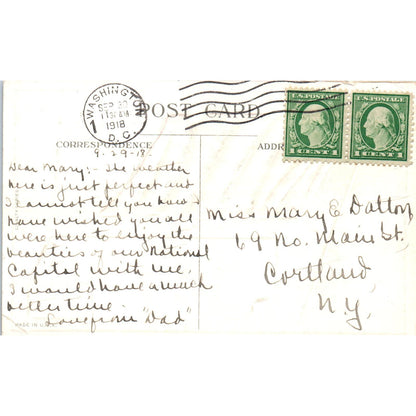 WASHINGTON
SEP 30
1130AM
1918
D.C.
1
POST CARD
U.S. POSTAGE
1 CENT 1
U.S. POSTAGE
1 CENT 1
CORRESPONDENCE
9-29-18-
Dear Mary:- The weather
here is just perfect and
I cannot tell you how I
have wished you all
were here to enjoy the
beauties of our National
Capital with me.
I would have a much
better time.
Love from "Dad"
MADE IN U.S.A.
ADDR
Miss Mary E Dalton
69 No. Main St.
Cortland
N.Y.